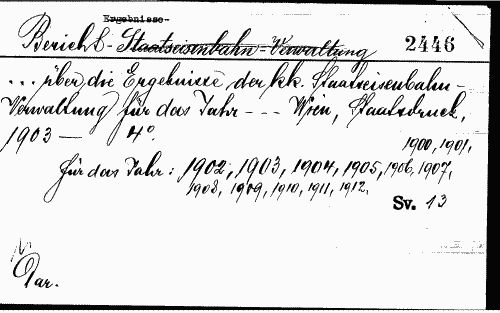 Ergebnisse-
Bericht - Staatseisenbahn=Verwaltung 2446
... über die Ergebnisse der k.k. Staatseisenbahn-
Verwaltung für das Jahr --- Wien, Staatsdruck,
1903 — 4°. 1900, 1901,
für das Jahr: 1902, 1903, 1904, 1905, 1906, 1907,
1908, 1909, 1910, 1911, 1912.
Sv. 13
Dar.